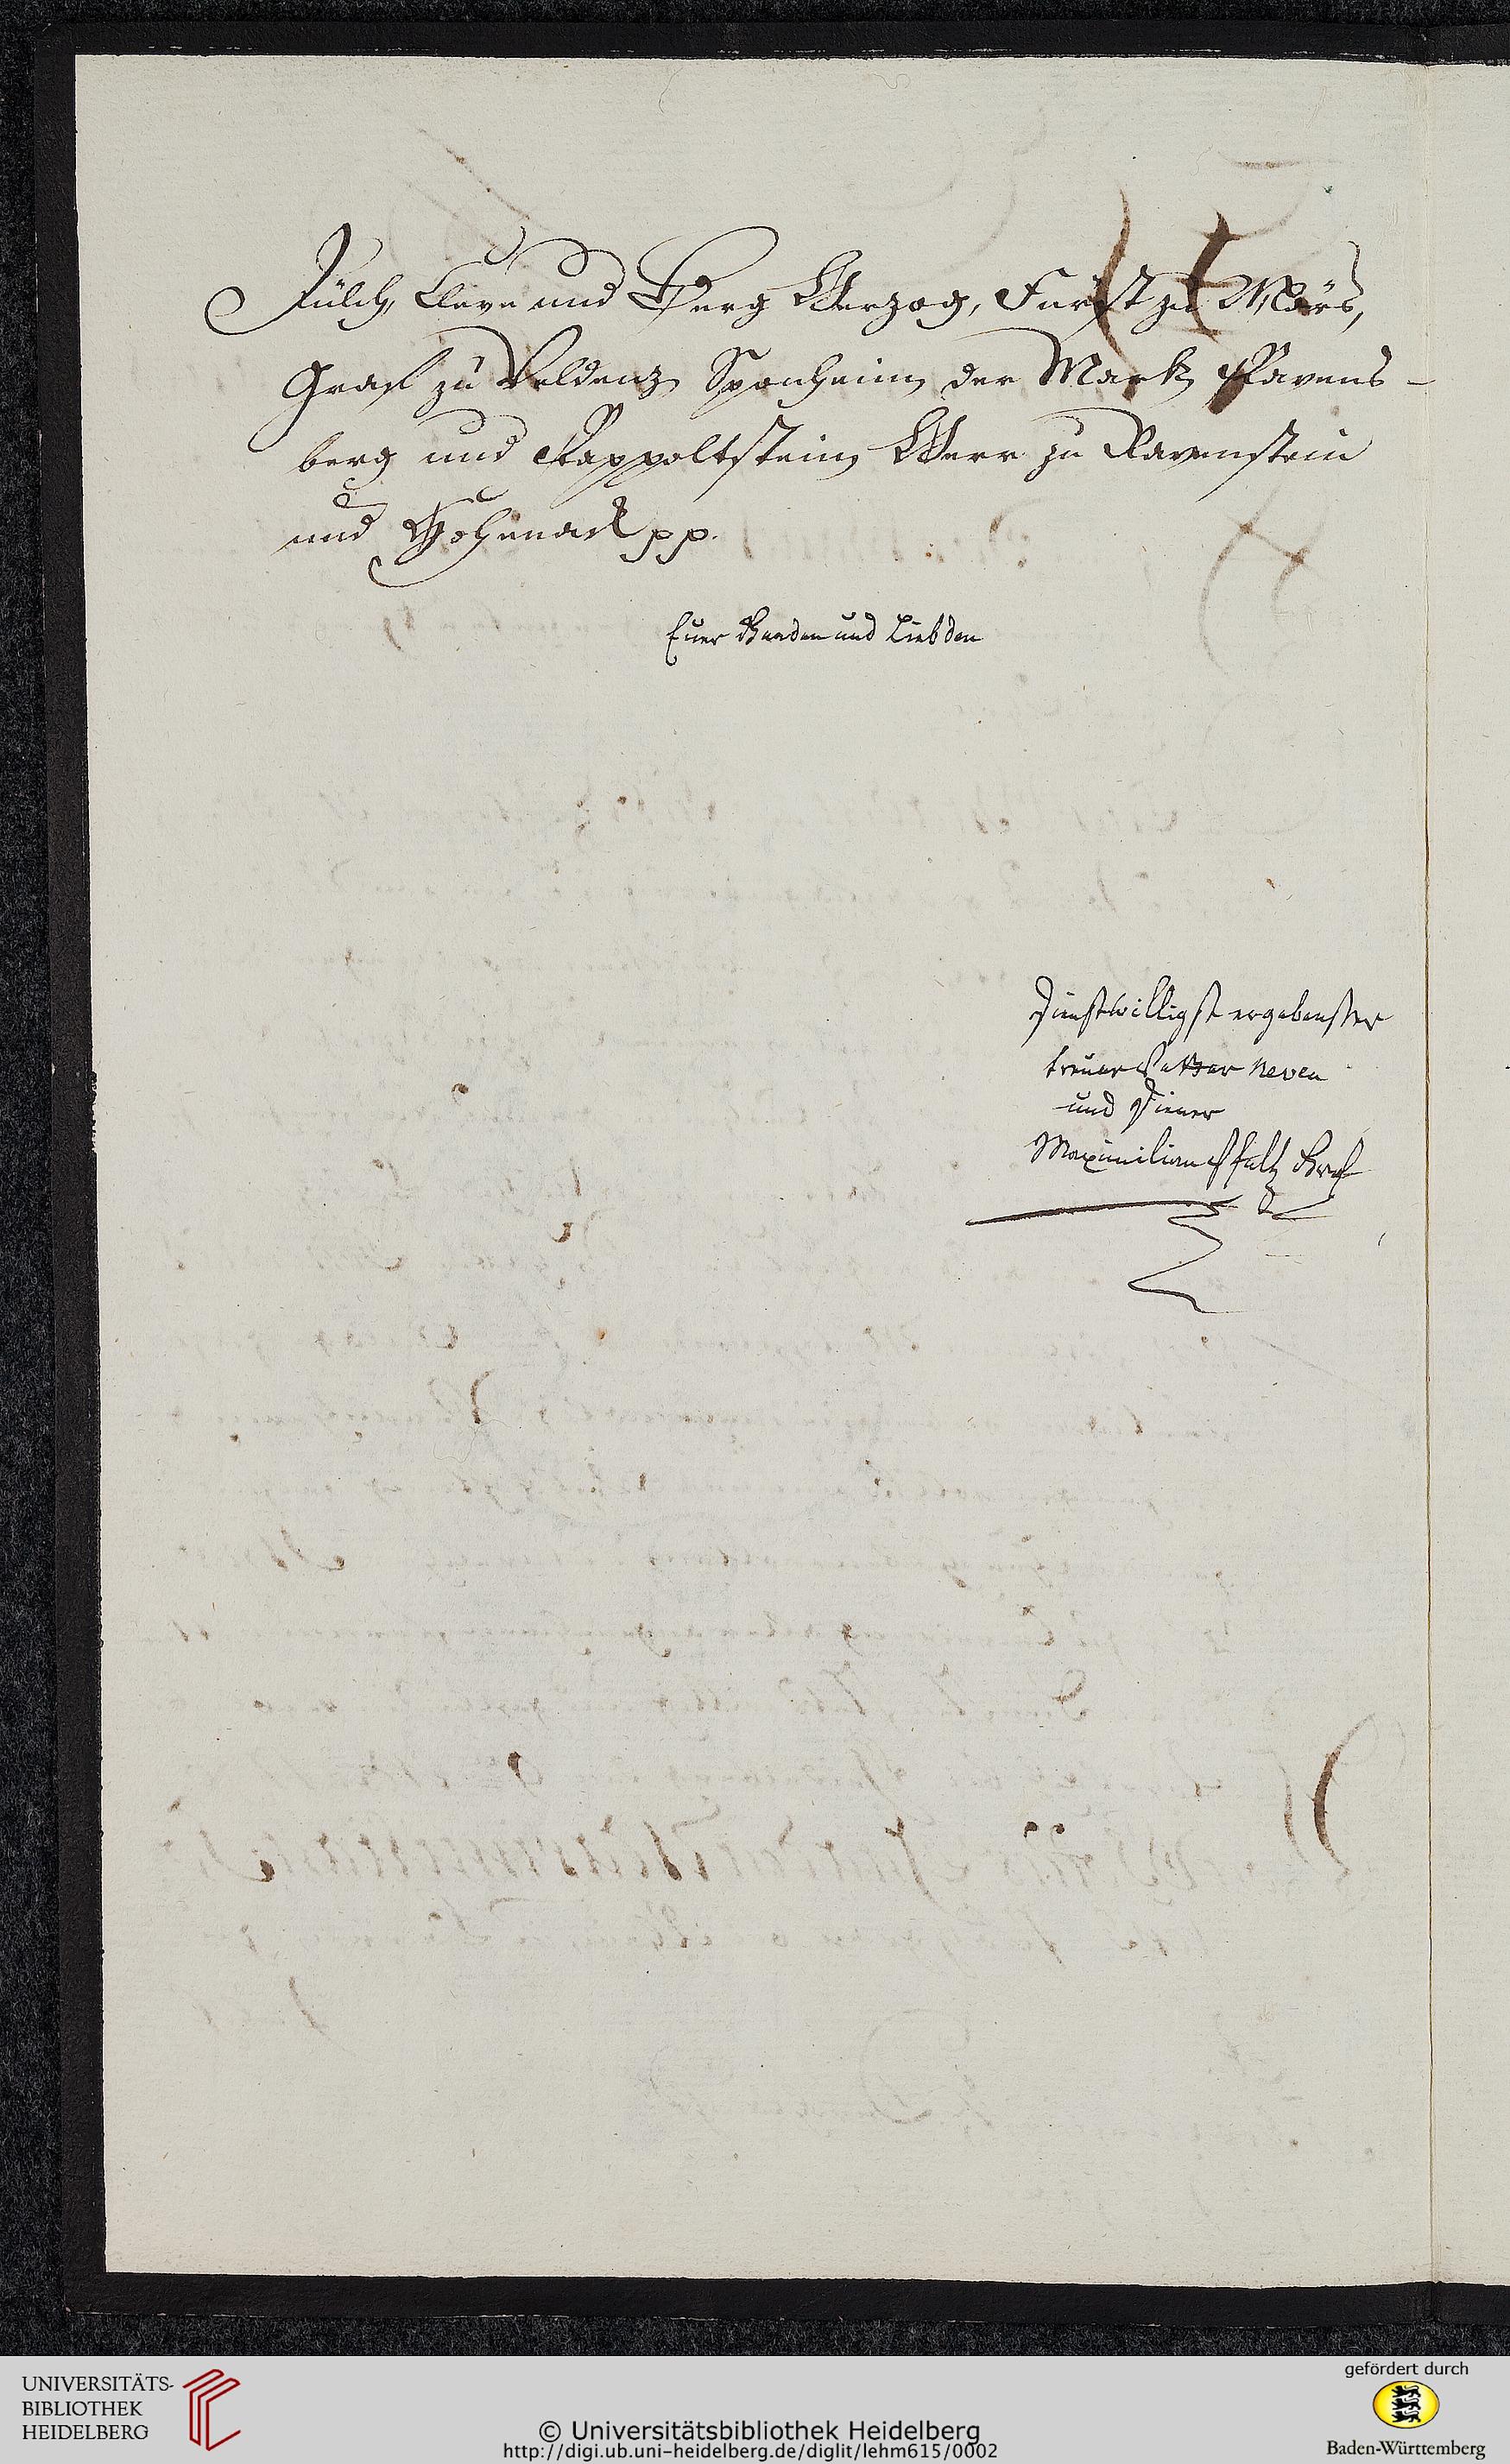 Jülch, Cleve und Berg Herzog, Fürst zu Mörs,
Graf zu Veldenz, Sponheim, der Mark, Ravens-
berg und Rappoltstein, Herr zu Ravenstein
und Hohenack pp.
Euer Gnaden und Liebden
Dienstwilligst ergebenster
treuer Vetter Neveu
und Diener
Maximilian Pfaltz Graf
UNIVERSITÄTS-
BIBLIOTHEK
HEIDELBERG
© Universitätsbibliothek Heidelberg
http://digi.ub.uni-heidelberg.de/diglit/lehm615/0002
gefördert durch
Baden-Württemberg